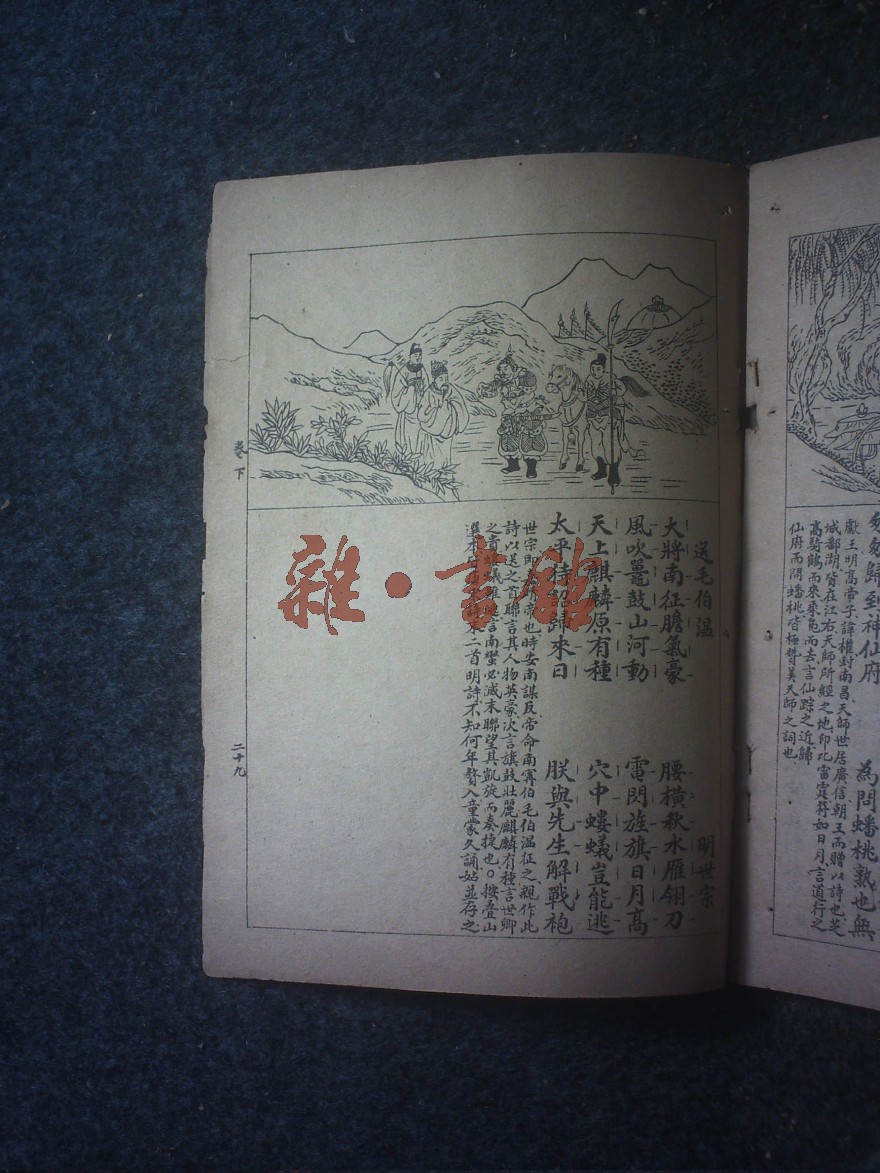 匆匆歸到神仙府 為問蟠桃熟也無
獻王明高帝子諱權封南昌天師世居廣信朝王而贈以詩也芝
城鄱湖皆在江右天師所經之地印北雷霆符如日月言道行之
高騎鶴而來乘龟而去言仙踪之近歸
仙府而問蟠桃皆極贊美天師之詞也
送毛伯温 明世宗
大將南征膽氣豪 腰橫秋水雁翎刀
風吹鼉鼓山河動 雷閃旌旗日月高
天上麒麟原有種 穴中螻蟻豈能逃
太平待詔歸來日 朕與先生解戰袍
世宗即嘉 帝也時安南謀反帝命南寗伯毛伯温征之親作此
詩以送之首聯言其人物英豪次言旗鼓壯麗麒麟有種言世卿
之貴螻蟻 言南蠻必滅末聯望其凱旋而奏捷也○按叠山
選本 末二首明詩不知何年贅入童蒙久誦姑並存之
卷下
二十九
雜·書舘